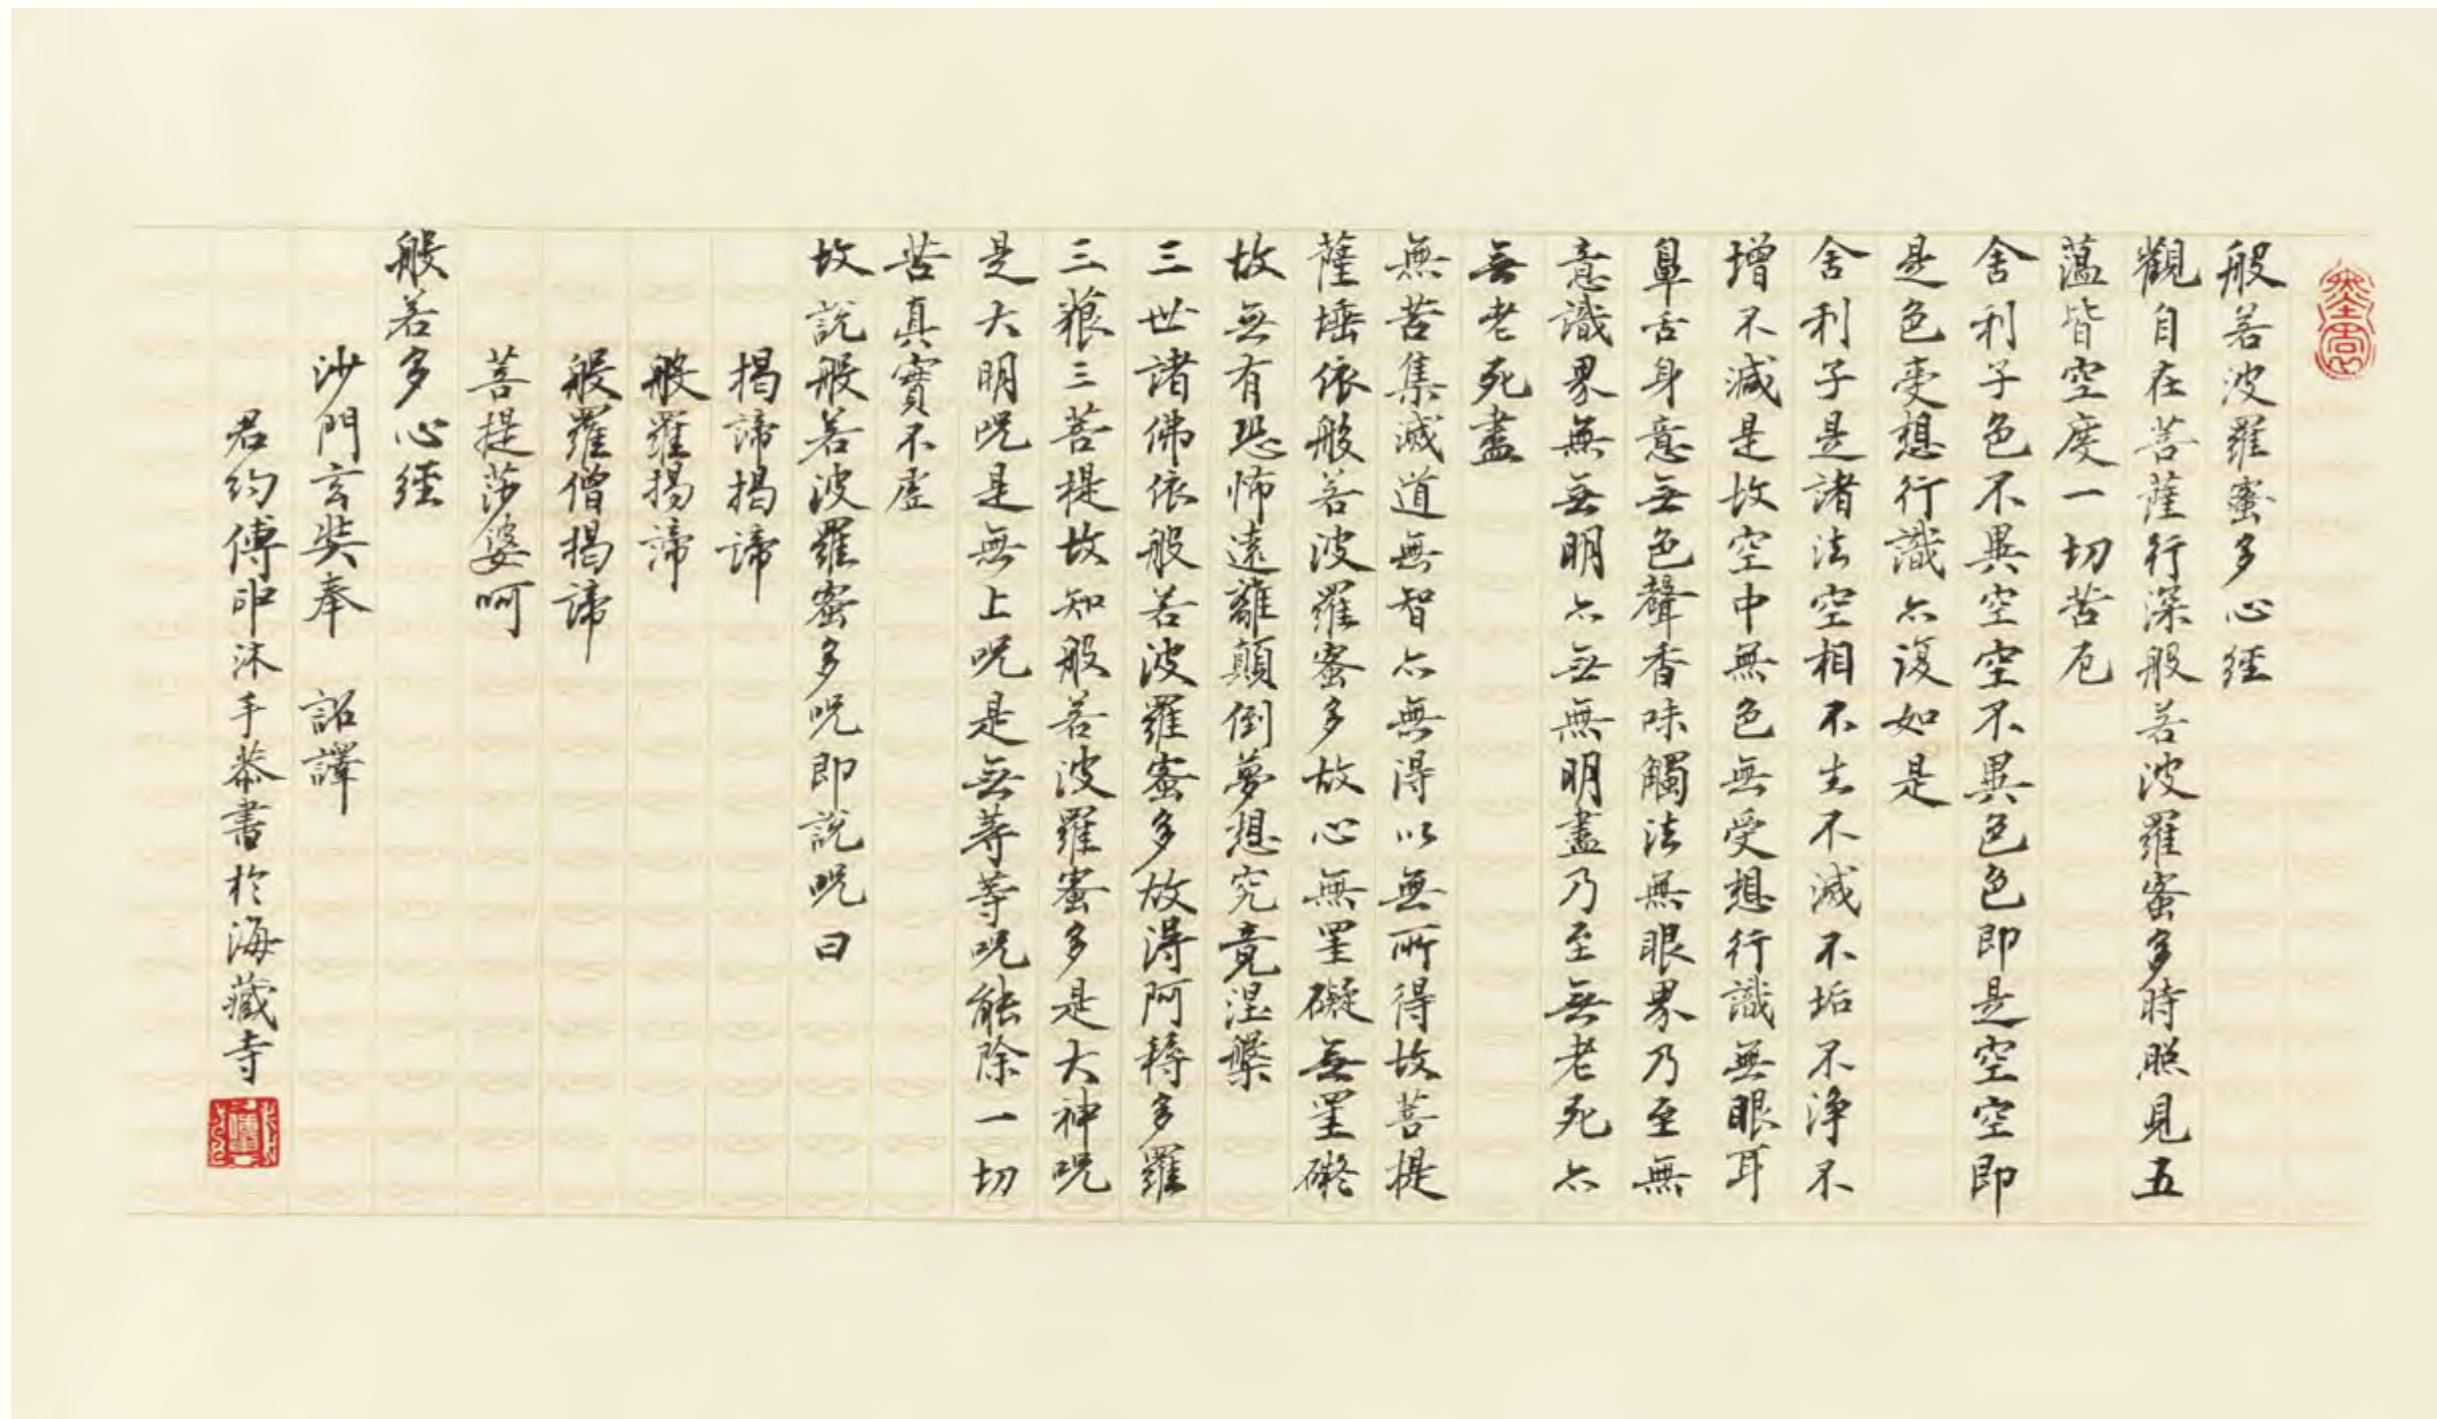 般若波羅蜜多心經
觀自在菩薩行深般若波羅蜜多時照見五
蘊皆空度一切苦厄
舍利子色不異空空不異色色即是空空即
是色受想行識亦復如是
舍利子是諸法空相不生不滅不垢不淨不
增不減是故空中無色無受想行識無眼耳
鼻舌身意無色聲香味觸法無眼界乃至無
意識界無無明亦無無明盡乃至無老死亦
無老死盡
無苦集滅道無智亦無得以無所得故菩提
薩埵依般若波羅蜜多故心無罣礙無罣礙
故無有恐怖遠離顛倒夢想究竟涅槃
三世諸佛依般若波羅蜜多故得阿耨多羅
三藐三菩提故知般若波羅蜜多是大神呪
是大明呪是無上呪是無等等呪能除一切
苦真實不虛
故說般若波羅蜜多呪即說呪曰
揭諦揭諦
般羅揭諦
般羅僧揭諦
菩提莎婆呵
般若多心經
沙門玄奘奉 詔譯
君約傅印沐手恭書於海藏寺